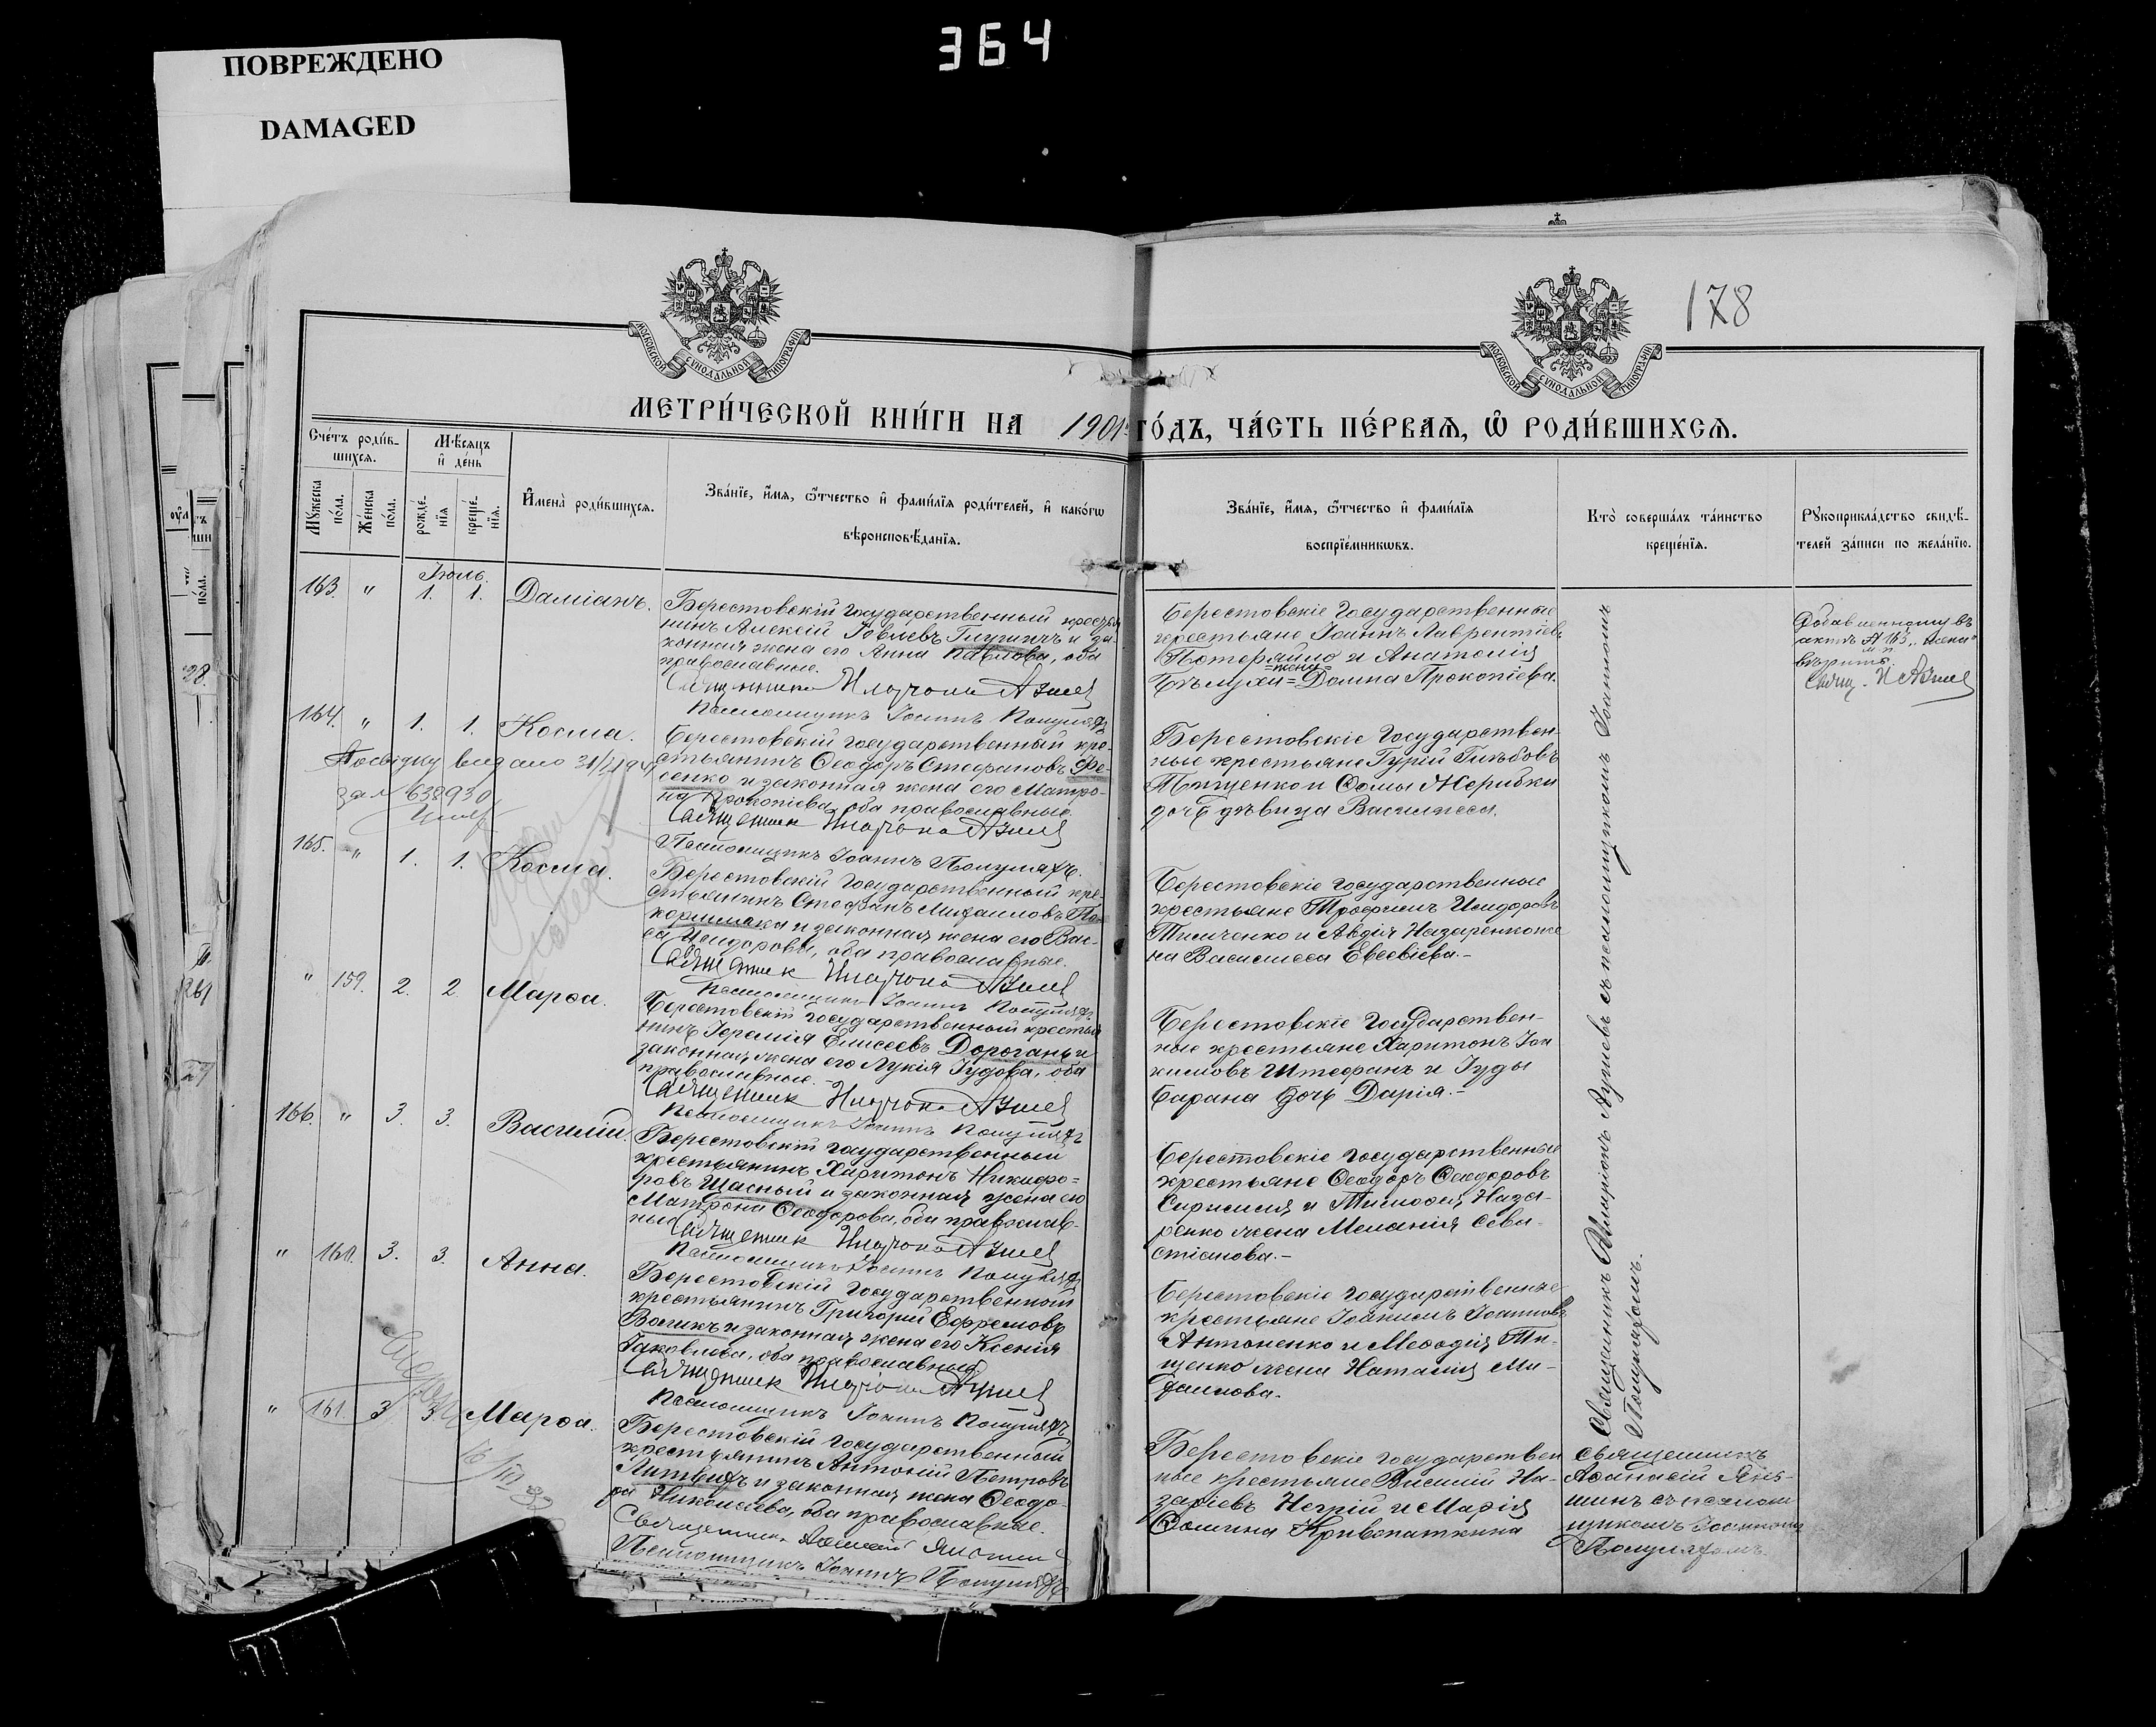 364
ПОВРЕЖДЕНО
DAMAGED
178
МОСКОВСКОЙ СУНОДАЛЬНОЙ ТИПОГРАФІИ
МОСКОВСКОЙ СУНОДАЛЬНОЙ ТИПОГРАФІИ
МЕТРИ́ЧЕСКОЙ КНИ́ГИ НА 1901 ГО́ДЪ, ЧА́СТЬ ПЕ́РВАЯ, Ѡ҆ РОДИ́ВШИХСЯ.
Сче́тъ роди́в-
шихся.
Мѣ́сяцъ
и҆ де́нь
Мꙋ́жеска
по́ла.
Же́нска
по́ла.
рожде́-
нїя
креще́-
нїя.
И҆мена̀ роди́вшихся.
Зва́нїе, и҆́мя, ѻ҆́тчество и҆ фами́лїя роди́телей, и҆ како́гѡ
вѣроисповѣ́данїя.
Зва́нїе, и҆́мя, ѻ҆́тчество и҆ фами́лїя
воспрїе́мникѡвъ.
Кто̀ соверша́лъ та́инство
креще́нїя.
Рꙋкоприкла́дство свидѣ́-
телей за́писи по жела́нїю.
Іюль.
163. " 1. 1. Даміанъ.
Берестовскій государственный крестья
нинъ Алексій Іовлевъ и за-
конная жена его Анна Павлова, оба
православные.
Священникъ Иларіонъ
Псаломщикъ Іоаннъ
Берестовскіе государственные
крестьяне Іоаннъ Лаврентіевъ
Потеряйло и Анатолія
=жена=
Домна Прокопіева.
актѣ № 163 "жена"
вѣрить.
Свящ. И
164. " 1. 1. Косма.
Посвідку видано
за № 638930
Берестовскій государственный кре-
стьянинъ Ѳеодоръ Стефановъ Фе-
сенко и законная жена его Матро-
на Прокопіева, оба православные.
Священникъ Иларіонъ
Псаломщикъ Іоаннъ Полуляхъ.
Берестовскіе государствен-
ные крестьяне Гурій Глѣбовъ
Тищенко и Ѳомы Жерибки
дочь дѣвица Василисса.
165. " 1. 1. Косма.
Берестовскій государственный кре-
стьянинъ Стефанъ Михаиловъ
и законная жена его Вас-
са Исидорова, оба православные.
Священникъ Иларіонъ
Псаломщикъ Іоаннъ Полуляхъ
Берестовскіе государственные
крестьяне Трофимъ Исидоровъ
Тимченко и Авдія Назаренко же
на Василисса Евсевіева.-
" 159. 2. 2. Марѳа.
Берестовскій государственный крестья
нинъ Іеремія Елисеевъ Дорогань и
законная жена его Лукія Іудова, оба
православные.
Священникъ Иларіонъ
Псаломщикъ Іоаннъ Полуляхъ
Берестовскіе государствен-
ные крестьяне Харитонъ Іоа
кимовъ Штефанъ и Іуды
Барана дочь Дарія.-
166. " 3. 3. Василій.
Берестовскій государственный
крестьянинъ Харитонъ Никифо=
ровъ Щасный и законная жена его
Матрона Ѳеодорова, оба православ-
ные Священникъ Иларіонъ
Псаломщикъ Іоаннъ Полуляхъ
Берестовскіе государственные
крестьяне Ѳеодоръ Ѳеодоровъ
и Тимоѳея Наза-
ренко жена Меланія Сева-
стіанова.-
" 160. 3. 3. Анна.
Берестовскій государственный
крестьянинъ Григорій Ефремовъ
Воликъ и законная жена его Ксенія
Іаковлева, оба православные
Священникъ Иларіонъ
Псаломщикъ Іоаннъ Полуляхъ
Берестовскіе государственные
крестьяне Іоакимъ Іоанновъ
Антоненко и Меѳодія Ти-
щенко жена Наталія Ми-
хаилова.
" 161 3 3 Марѳа.
Берестовскій государственный
крестьянинъ Антоній Петровъ
Литвихъ и законная жена Ѳеодо-
ра Николаева, оба православные.
Священникъ Аѳанасій
Псаломщикъ Іоаннъ Полуляхъ
Берестовскіе государствен
ные крестьяне Василій На-
заріевъ Негрій и Марія
Ѳомина Кривопаткина
Священникъ
Аѳанасій
шинъ съ псалом
щикомъ Іоанномъ
Полуляхомъ.
Священникъ Иларіонъ съ псаломщикомъ Іоанномъ
Полуляхомъ.